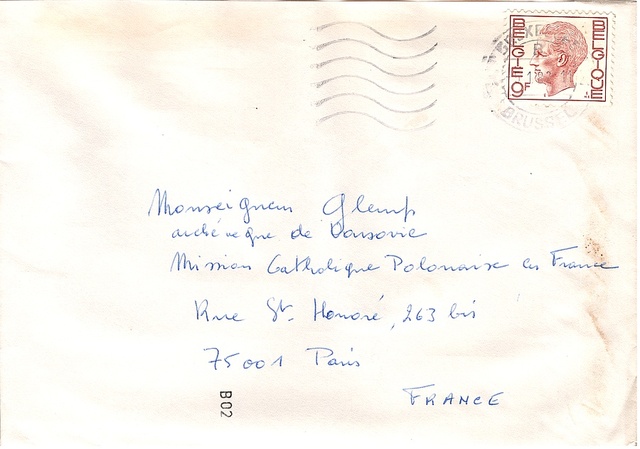 BELGIE 9F BELGIQUE
BRUSSEL
Monseigneur Glemp
archevêque de Varsovie
Mission Catholique Polonaise en France
Rue St. Honoré, 263 bis
75001 Paris
FRANCE
B02